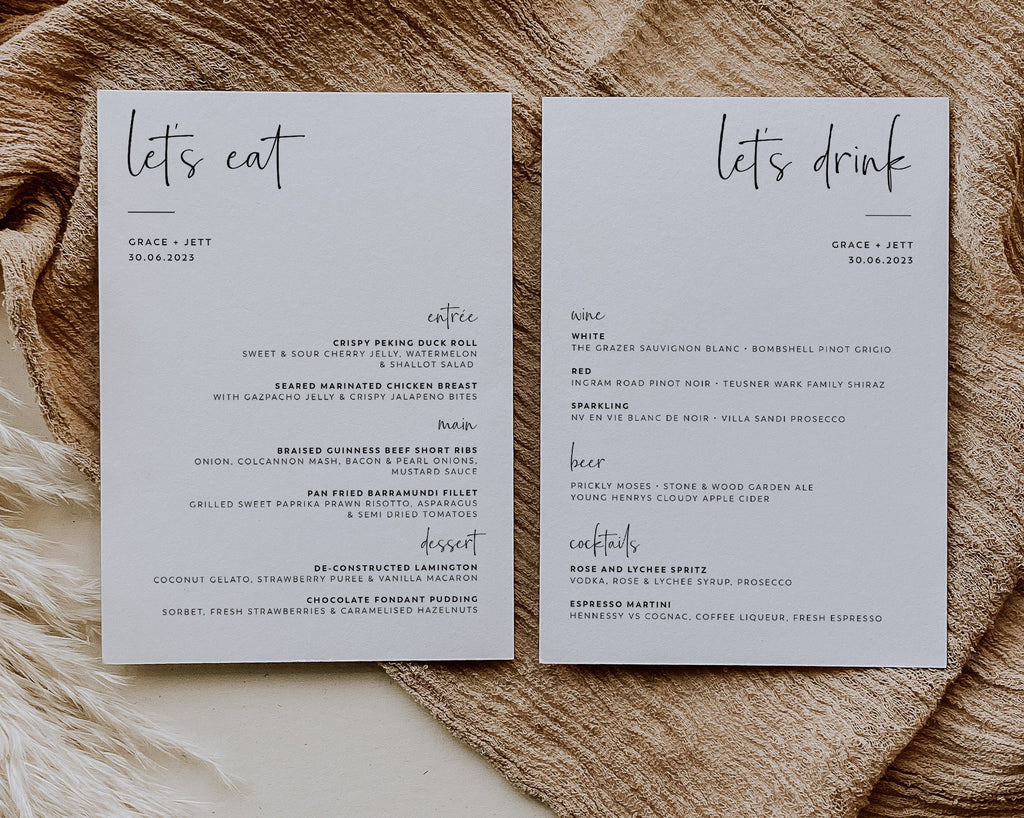 let's eat
GRACE + JETT
30.06.2023
entrée
CRISPY PEKING DUCK ROLL
SWEET & SOUR CHERRY JELLY, WATERMELON
& SHALLOT SALAD
SEARED MARINATED CHICKEN BREAST
WITH GAZPACHO JELLY & CRISPY JALAPENO BITES
main
BRAISED GUINNESS BEEF SHORT RIBS
ONION, COLCANNON MASH, BACON & PEARL ONIONS,
MUSTARD SAUCE
PAN FRIED BARRAMUNDI FILLET
GRILLED SWEET PAPRIKA PRAWN RISOTTO, ASPARAGUS
& SEMI DRIED TOMATOES
dessert
DE-CONSTRUCTED LAMINGTON
COCONUT GELATO, STRAWBERRY PUREE & VANILLA MACARON
CHOCOLATE FONDANT PUDDING
SORBET, FRESH STRAWBERRIES & CARAMELISED HAZELNUTS
let's drink
GRACE + JETT
30.06.2023
wine
WHITE
THE GRAZER SAUVIGNON BLANC • BOMBSHELL PINOT GRIGIO
RED
INGRAM ROAD PINOT NOIR • TEUSNER WARK FAMILY SHIRAZ
SPARKLING
NV EN VIE BLANC DE NOIR • VILLA SANDI PROSECCO
beer
PRICKLY MOSES • STONE & WOOD GARDEN ALE
YOUNG HENRYS CLOUDY APPLE CIDER
cocktails
ROSE AND LYCHEE SPRITZ
VODKA, ROSE & LYCHEE SYRUP, PROSECCO
ESPRESSO MARTINI
HENNESSY VS COGNAC, COFFEE LIQUEUR, FRESH ESPRESSO